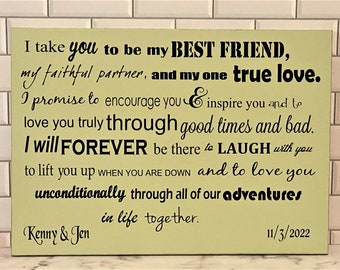 I take you to be my BEST FRIEND,
my faithful partner, and my one true love.
I promise to encourage you & inspire you and to
love you truly through good times and bad.
I will FOREVER be there to LAUGH with you
to lift you up WHEN YOU ARE DOWN and to love you
unconditionally through all of our adventures
in life together.
Kenny & Jen 11/5/2022